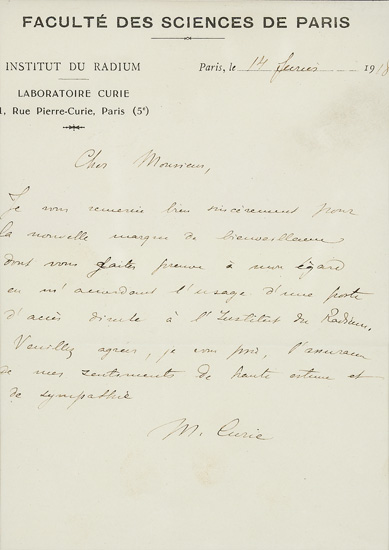 FACULTÉ DES SCIENCES DE PARIS
INSTITUT DU RADIUM
LABORATOIRE CURIE
1, Rue Pierre-Curie, Paris (5e)
Paris, le 14 février 1918
Cher Monsieur,
Je vous remercie bien sincèrement pour
la nouvelle marque de bienveillance
dont vous faites preuve à mon égard
en m'accordant l'usage d'une porte
d'accès directe à l'Institut du Radium.
Veuillez agréer, je vous prie, l'assurance
de mes sentiments de haute estime et
de sympathie
M. Curie